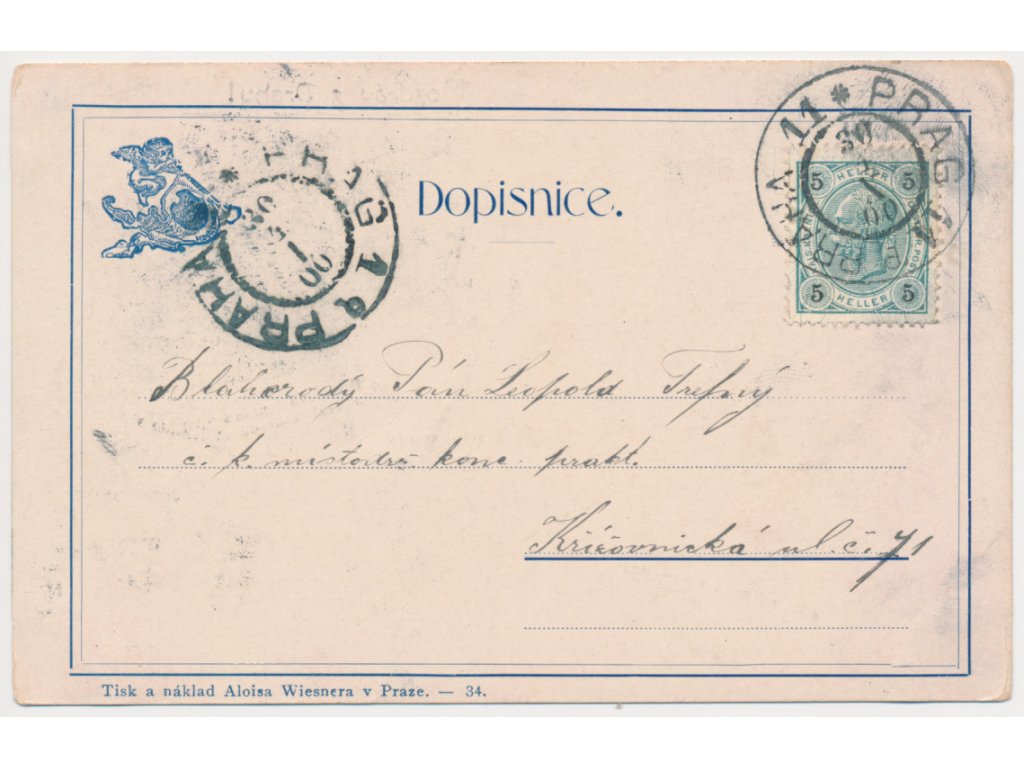 Dopisnice.
PRAG 1 PRAHA
30
1
00
PRAG 11 PRAHA
30
1
00
5 HELLER 5
5 HELLER 5
Blahorodý Pán Leopold Trefný
c. k. místodrž. konc. prakt.
Křižovnická ul. č. 71
Tisk a náklad Aloisa Wiesnera v Praze. — 34.